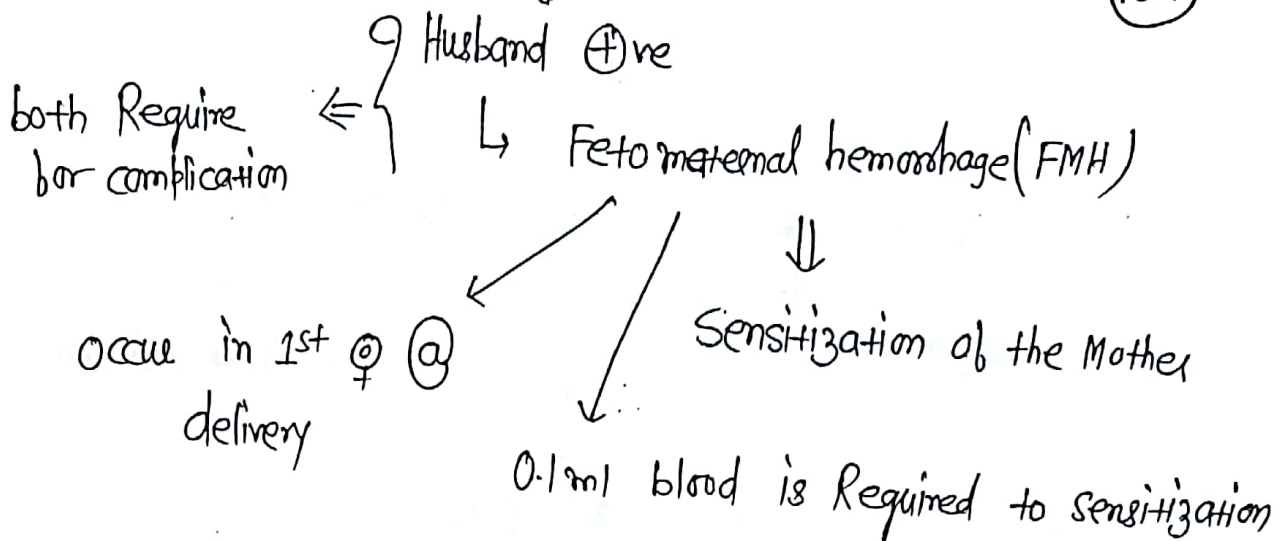 Husband ⊕ve
both Require ⇐
for complication
↳ Fetomaternal hemorrhage (FMH)
⇓
occur in 1st ♀ @
delivery
Sensitization of the Mother
0.1ml blood is Required to sensitization